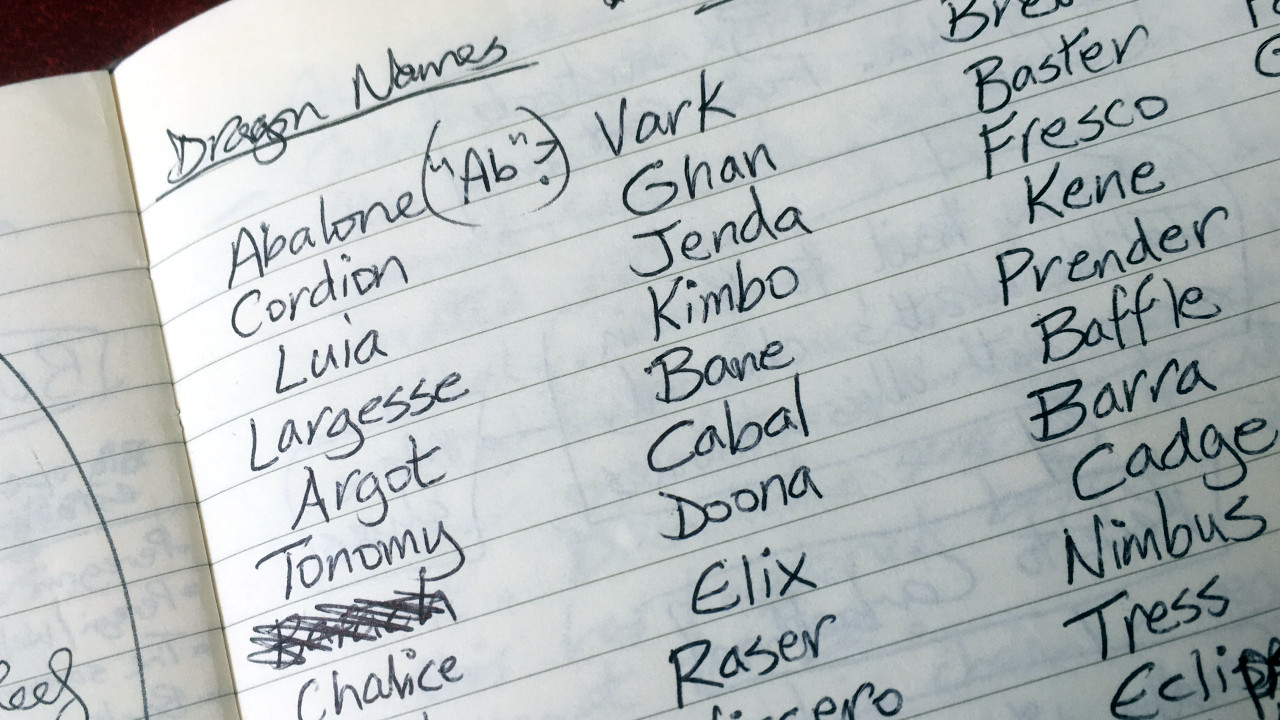 Dragon Names
Abalone ("Ab"?)
Cordion
Luia
Largesse
Argot
Tonomy
Chalice
Vark
Ghan
Jenda
Kimbo
Bane
Cabal
Doona
Elix
Raser
Baster
Fresco
Kene
Prender
Baffle
Barra
Cadge
Nimbus
Tress